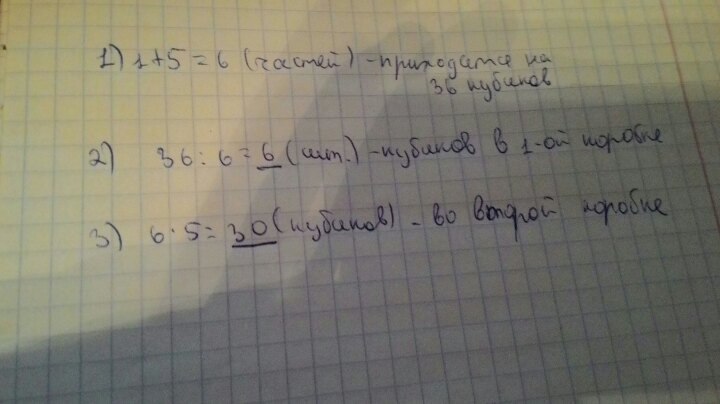 1) 1+5=6 (частей) - приходится на
36 кубиков
2) 36:6=6 (шт.) - кубиков в 1-ой коробке
3) 6·5=30 (кубиков) - во второй коробке